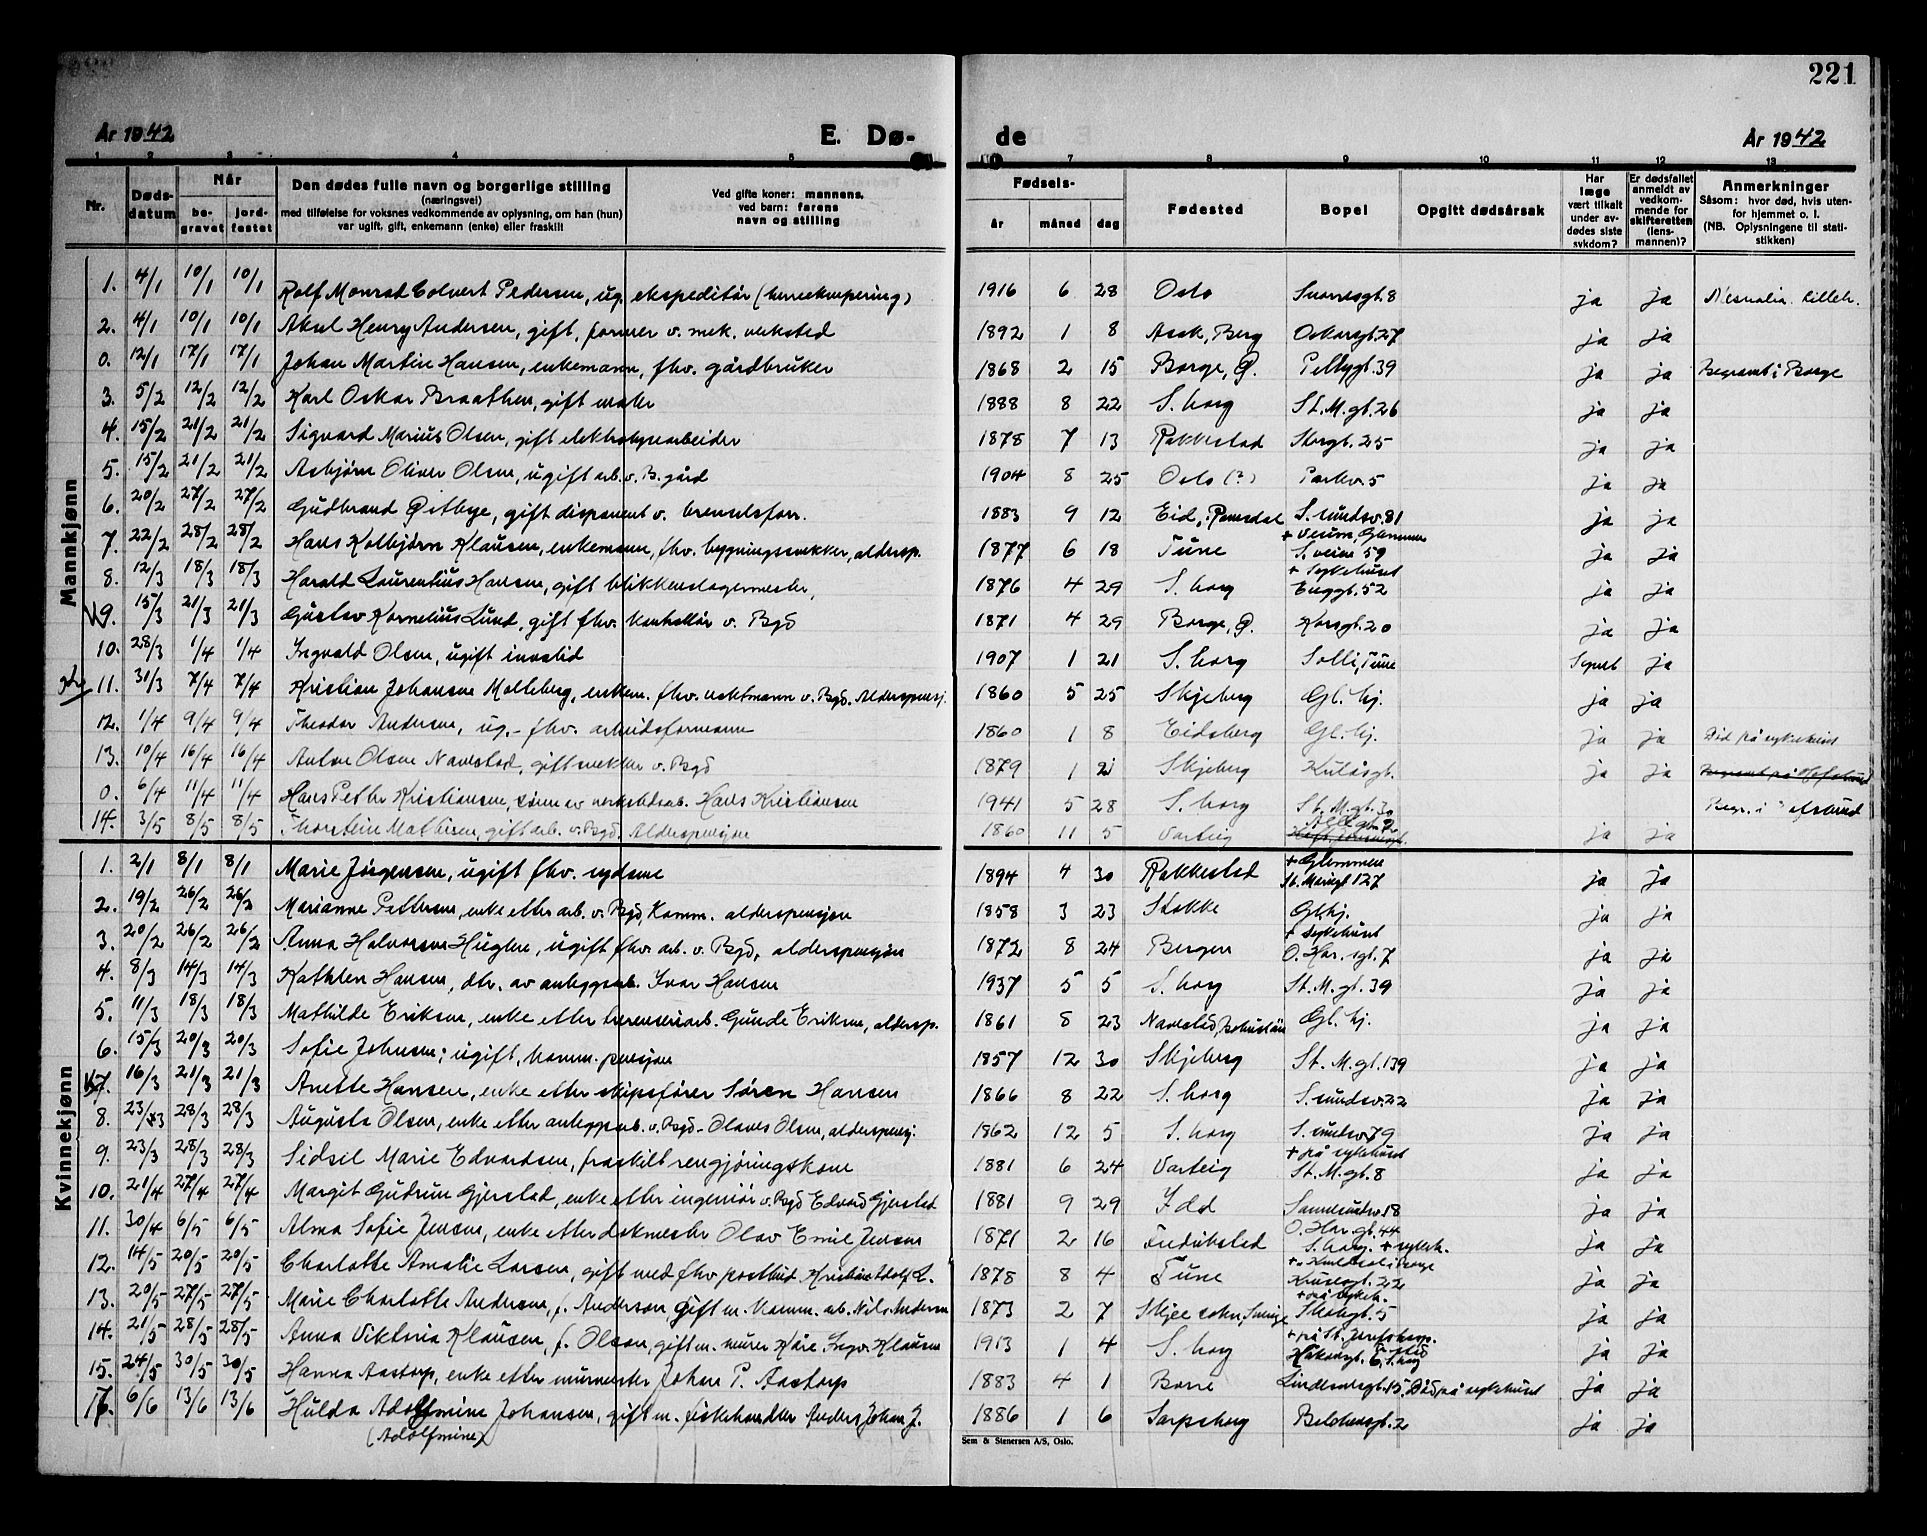 221
År 1942 E. Dø- de År 1942
1 2 3 4 5 7 8 9 10 11 12 13
Nr. Døds-datum Når be-gravet jord-festet Den dødes fulle navn og borgerlige stilling (næringsvei) med tilføielse for voksnes vedkommende av oplysning, om han (hun) var ugift, gift, enkemann (enke) eller fraskilt Ved gifte koner: mannens, ved barn: farens navn og stilling Fødsels- år måned dag Fødested Bopel Opgitt dødsårsak Har læge vært tilkalt under av-dødes siste sykdom? Er dødsfallet anmeldt av vedkom-mende for skifteretten (lens-mannen)? Anmerkninger Såsom: hvor død, hvis uten-for hjemmet o. l. (NB. Oplysningene til stati-stikken)
Mannkjønn
1. 4/1 10/1 10/1 Rolf Monrad Colvert Pedersen, ug. ekspeditør (herreekvipering) 1916 6 28 Oslo Snorresgt. 8 ja ja Mesnalia. Lilleh.
2. 4/1 10/1 10/1 Aksel Henry Andersen, gift, former v. mek. verksted 1892 1 8 Aask, Berg Oskarsgt. 27 ja ja
0. 12/1 17/1 17/1 Johan Martin Hansen, enkemann, fhv. gårdbruker 1868 2 15 Borge, Ø. Peltygt. 39 ja ja Begravet i Borge
3. 5/2 12/2 12/2 Karl Oskar Braathen, gift maler 1888 8 22 S. borg St. M. gt. 26 ja ja
4. 15/2 21/2 21/2 Sigvard Marius Olsen, gift elektrolysearbeider 1878 7 13 Rakkestad Storgt. 25 ja ja
5. 15/2 21/2 21/2 Asbjørn Oliver Olsen, ugift arb. v. B. gård 1904 8 25 Oslo (?) Parkv. 5 ja ja
6. 20/2 27/2 27/2 Gudbrand Østbye, gift disponent v. brenselsforr. 1883 9 12 Eid, Romsdal S. sundsv. 81 ja ja
7. 22/2 28/2 28/2 Hans Kolbjørn Klausen, enkemann, fhv. bygningssnekker, aldersp. 1877 6 18 Tune + Veum, Glemmen S. veien 59 ja ja
8. 12/3 18/3 18/3 Harald Laurentius Hansen, gift blikkenslagermester, 1876 4 29 S. borg + Sykehuset Enggt. 52 ja ja
9. 15/3 21/3 21/3 Gustav Kornelius Lund, gift fhv. kontrollør v. Bgd 1871 4 29 Borge, Ø. Korsgt. 20 ja ja
10. 28/3 1/4 1/4 Ingvald Olsen, ugift invalid 1907 1 21 S. borg Solli, Tune ja
11. 31/3 7/4 7/4 Kristian Johansen Molleberg, enkem. fhv. vaktmann v. Bgd. Alderspensj. 1860 5 25 Skjeberg Gl. hj. ja ja
12. 1/4 9/4 9/4 Theodor Andersen, ug. - fhv. arbeidsformann 1860 1 8 Eidsberg Gl. hj. ja ja Død på sykehuset
13. 10/4 16/4 16/4 Anton Olsen Navestad, gift snekker v. Bgd 1879 1 21 Skjeberg Kulåsgt. ja ja
0. 6/4 11/4 11/4 Hans Petter Kristiansen, sønn av verkstedsarb. Hans Kristiansen 1941 5 28 S. borg St. M. gt. 30 Begr. i Hafslund
14. 3/5 8/5 8/5 Thorstein Mathisen, gift arb. v. Bgd. Alderspensjon 1860 11 5 Varteig ja ja
Kvinnekjønn
1. 2/1 8/1 8/1 Marie Jørgensen, ugift fhv. sydame 1894 4 30 Rakkestad + Glemmen St. Mariegt 127 ja ja
2. 19/2 26/2 26/2 Marianne Pettersen, enke etter arb. v. Bgd, Komm. alderspensjon 1858 3 23 Stokke Gl. hj. ja ja
3. 20/2 26/2 26/2 Anna Halvorsen Huglen, ugift fhv. arb. v. Bgd, alderspensjon 1872 8 24 Bergen + sykehuset O. Har. sgt. 7 ja ja
4. 8/3 14/3 14/3 Kathlen Hansen, dtr. av anleggsarb. Ivar Hansen 1937 5 5 S. borg St. M. gt. 39 ja ja
5. 11/3 18/3 18/3 Mathilde Eriksen, enke etter garveriarb. Gunde Eriksen, aldersp. 1861 8 23 Navestad, Bohuslän Gl. hj. ja ja
6. 15/3 20/3 20/3 Sofie Johnsen; ugift, komm. pensjon 1857 12 30 Skjeberg St. M. gt. 139 ja ja
7. 16/3 21/3 21/3 Anette Hansen, enke etter skipsfører Sören Hansen 1866 8 22 S. borg S. sundsv. 22 ja ja
8. 23/3 28/3 28/3 Augusta Olsen, enke etter anleggsarb. v. Bgd - Olaves Olsen, alderspensj. 1862 12 5 S. borg S. sundsv. 39 ja ja
9. 23/3 28/3 28/3 Sidsel Marie Edvardsen, fraskilt rengjøringskone 1881 6 24 Varteig + på sykehuset St. M. gt. 8 ja ja
10. 21/4 27/4 27/4 Margit Gudrun Gjerstad, enke etter ingeniør v. Bgd Edvard Gjerstad 1881 9 29 Idd Sannesundsv. 18 ja ja
11. 30/4 6/5 6/5 Alma Sofie Jensen, enke etter dokmester Olav Emil Jensen 1871 2 16 Fredrikstad O. Har. gt. 44 S. borg. + sykeh. ja ja
12. 14/5 20/5 20/5 Charlotte Amalie Larsen, gift med fhv. postbud Kristian Adolf L. 1878 8 4 Tune Krusesgt. 22 ja ja
13. 20/5 27/5 27/5 Marie Charlotte Andersen, f. Anderson, gift m. komm. arb. Nils Andersen 1873 2 7 Skjee sokn, Sverige + på sykeh. Skolegt. 5 ja ja
14. 21/5 28/5 28/5 Anna Viktoria Klausen, f. Olsen, gift m. murer Kåre Ingv. Klausen 1913 1 4 S. borg + på St. Josefs hosp. Håkonsgt. 6, S. borg ja ja
15. 24/5 30/5 30/5 Hanna Aastorp, enke etter murmester Johan P. Aastorp 1883 4 1 Borre Lindemannsgt. 15, Død på sykehuset ja ja
16. 6/6 13/6 13/6 Hulda Adolfmine Johansen, gift m. fiskehandler Anders Johan J. 1886 1 6 Sarpsborg gt. 2 ja ja
(Adolfmine)
Sem & Stenersen A/S, Oslo.